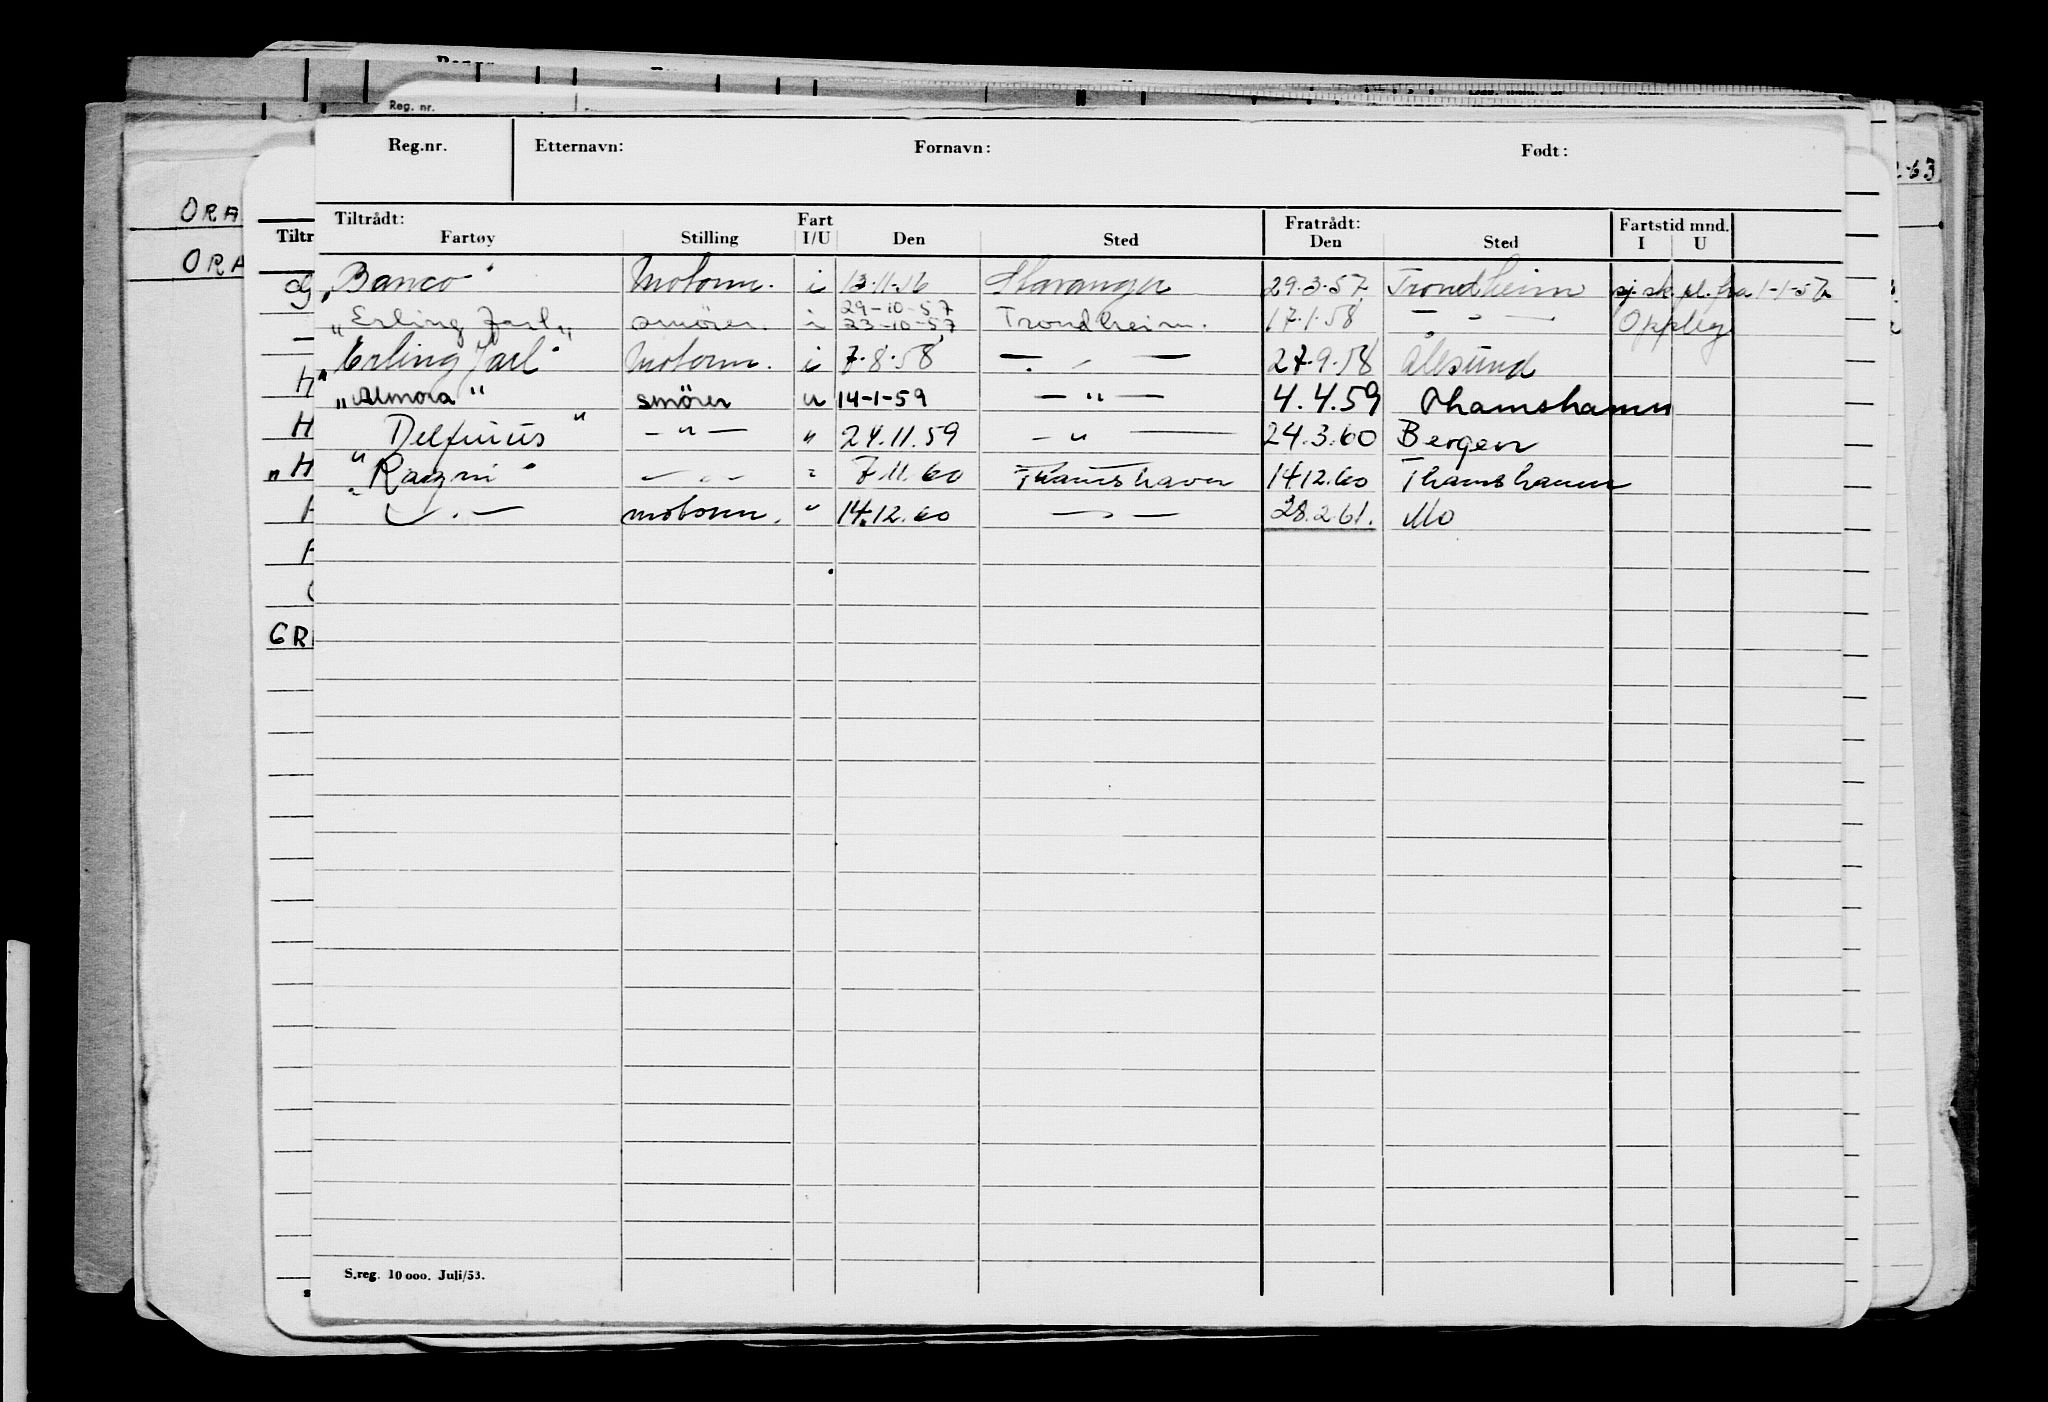 Reg. nr.
2-63
Reg.nr. Etternavn: Fornavn: Født:
ORA
Tiltrådt: Fart Fratrådt: Fartstid mnd.
Tiltr Fartøy Stilling I/U Den Sted Den Sted I U
ORA
"Banco" Motorm. i 13.11.16 Stavanger 29.3.57 Trondheim sj. sk. pl. fra 1-1-57
29-10-57
"Erling Jarl" smörer. i 23-10-57 Trondheim. 17.1.58 — " — Opplag
"Erling Jarl" Motorm. i 7.8.58 — " — 27.9.58 Ålesund
H "Almora" smörer u 14-1-59 — " — 4.4.59 Thamshamn
H "Delfinus" — " — " 24.11.59 — " — 24.3.60 Bergen
"H "Ragni" — " — " 7.11.60 Thamshavn 14.12.60 Thamshamn
— " — motorm. " 14.12.60 — " — 28.2.61. Mo
GR
S.reg. 10 000. Juli/53.